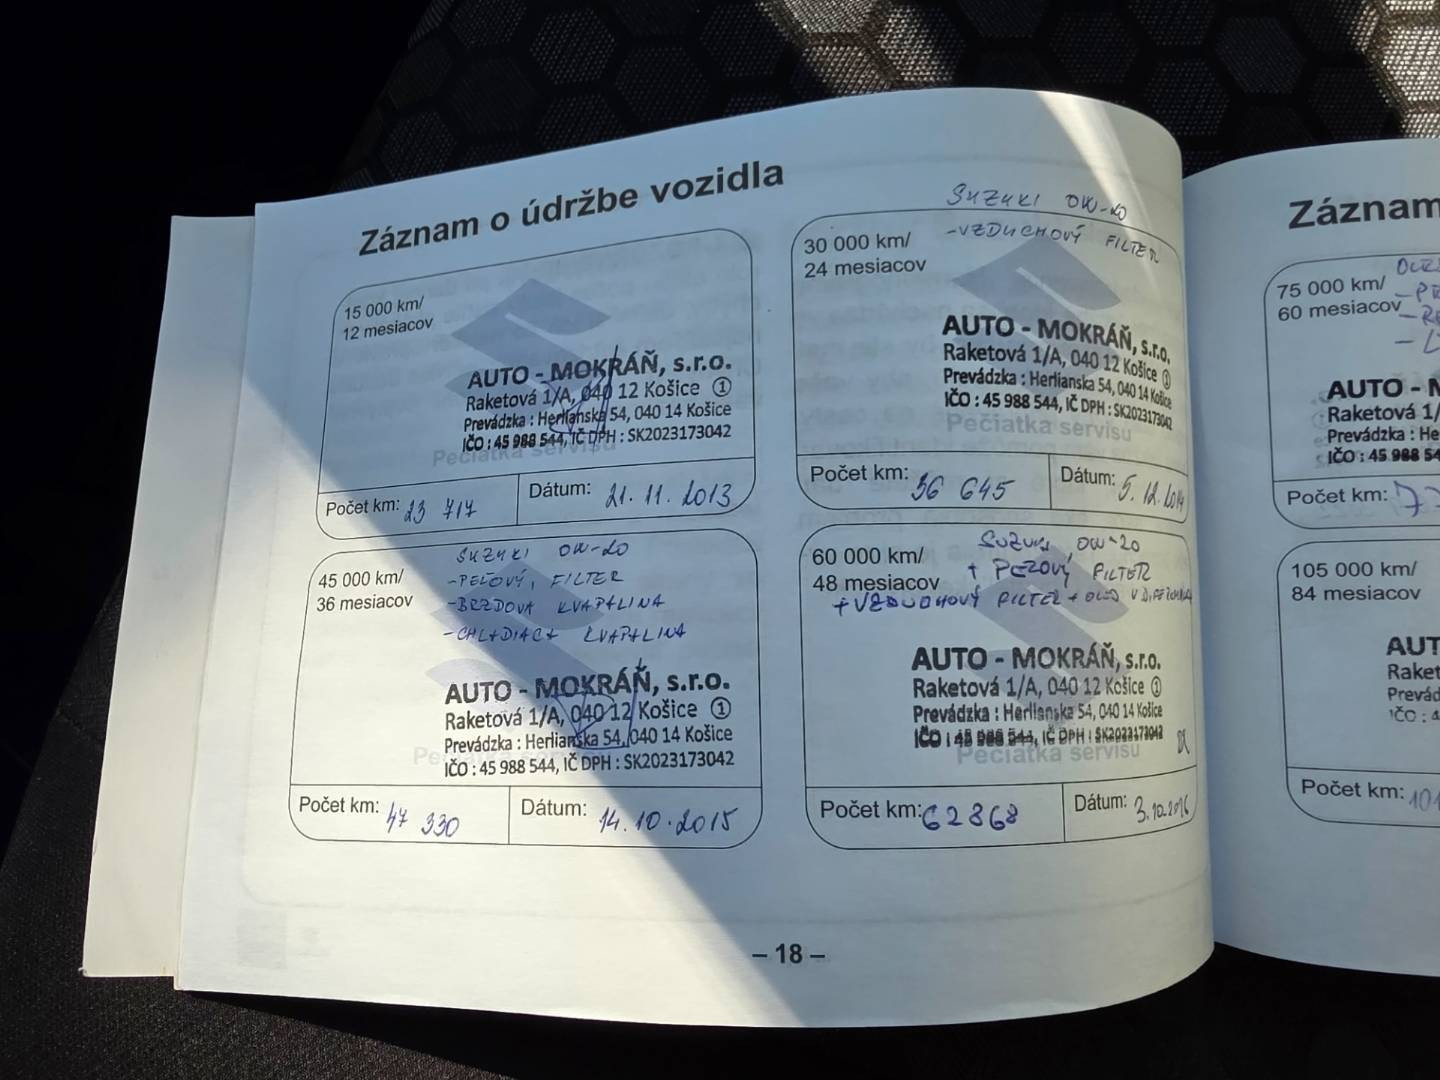 Záznam o údržbe vozidla
15 000 km/
12 mesiacov
AUTO - MOKRÁŇ, s.r.o.
Raketová 1/A, 040 12 Košice ①
Prevádzka : Herlianska 54, 040 14 Košice
IČO : 45 988 544, IČ DPH : SK2023173042
Pečiatka servisu
Počet km: 23 717
Dátum: 21.11.2013
SUZUKI 0W-20
-VZDUCHOVÝ FILTER
30 000 km/
24 mesiacov
AUTO - MOKRÁŇ, s.r.o.
Raketová 1/A, 040 12 Košice ①
Prevádzka : Herlianska 54, 040 14 Košice
IČO : 45 988 544, IČ DPH : SK2023173042
Pečiatka servisu
Počet km: 36 645
Dátum: 5.12.2014
45 000 km/
36 mesiacov
SUZUKI 0W-20
-PEĽOVÝ FILTER
-BRZDOVA KVAPALINA
-CHLADIACA KVAPALINA
AUTO - MOKRÁŇ, s.r.o.
Raketová 1/A, 040 12 Košice ①
Prevádzka : Herlianska 54, 040 14 Košice
IČO : 45 988 544, IČ DPH : SK2023173042
Pečiatka servisu
Počet km: 47 330
Dátum: 14.10.2015
60 000 km/
48 mesiacov
SUZUKI 0W-20
+ PEĽOVÝ FILTER
+VZDUCHOVÝ FILTER + OLEJ V
AUTO - MOKRÁŇ, s.r.o.
Raketová 1/A, 040 12 Košice ①
Prevádzka : Herlianska 54, 040 14 Košice
IČO : 45 988 544, IČ DPH : SK2023173042
Pečiatka servisu
Počet km: 62868
Dátum: 3.10.2016
– 18 –
Záznam
75 000 km/
60 mesiacov
AUTO - M
Raketová 1/
Prevádzka : He
IČO : 45 988 54
Počet km: 77
105 000 km/
84 mesiacov
AUT
Raket
Prevád
IČO : 4
Počet km: 101